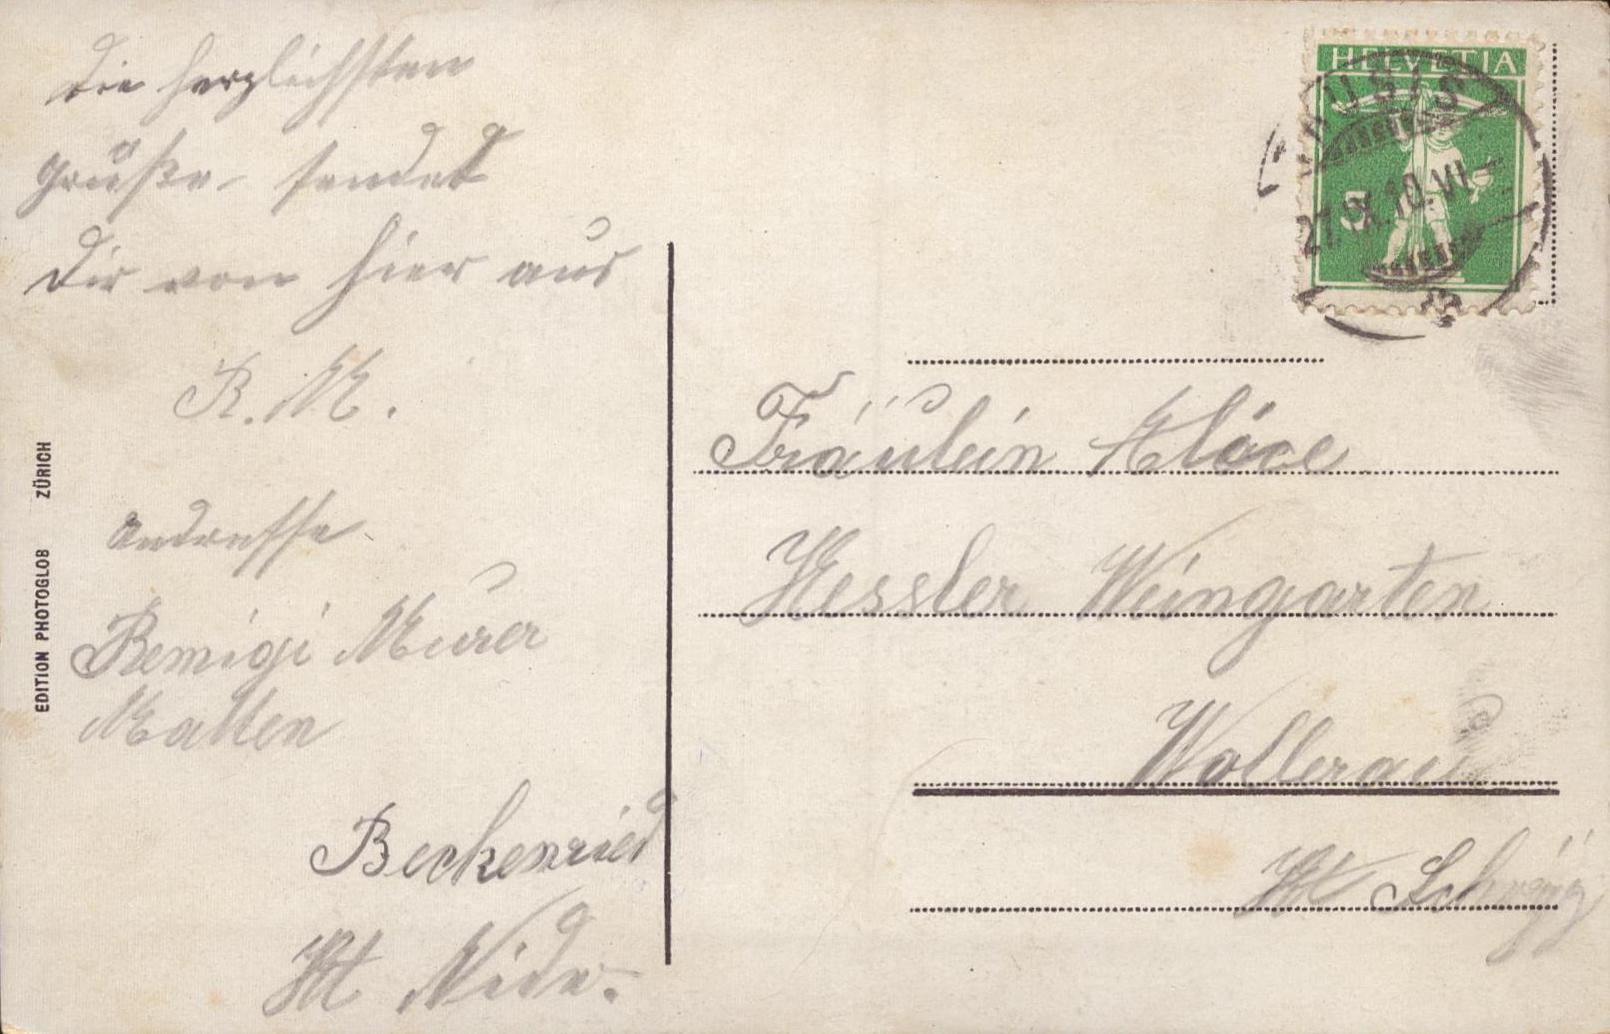 Die herzlichsten
Grüße sendet
Dir von hier aus
R. M.
Andresse
Remigi Murer
Matten
Beckenried
Kt Nidw.
EDITION PHOTOGLOB ZÜRICH
HELVETIA
5
27. IX. 10. VI
Fräulein
Hessler Weingarten
Wollerau
Kt Schwÿz